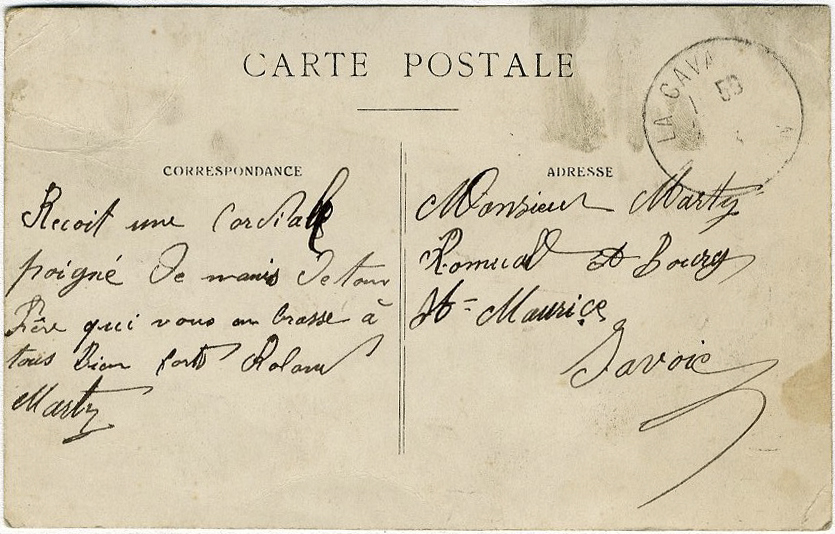 CARTE POSTALE
LA CAVA
CORRESPONDANCE
Recoit une Cordiale
poigné De mains De ton
Frère qui vous an brasse à
tous Bien fort Rolan
Marty
ADRESSE
Monsieur Marty
Romuald à Bourg
St-Maurice
Savoie